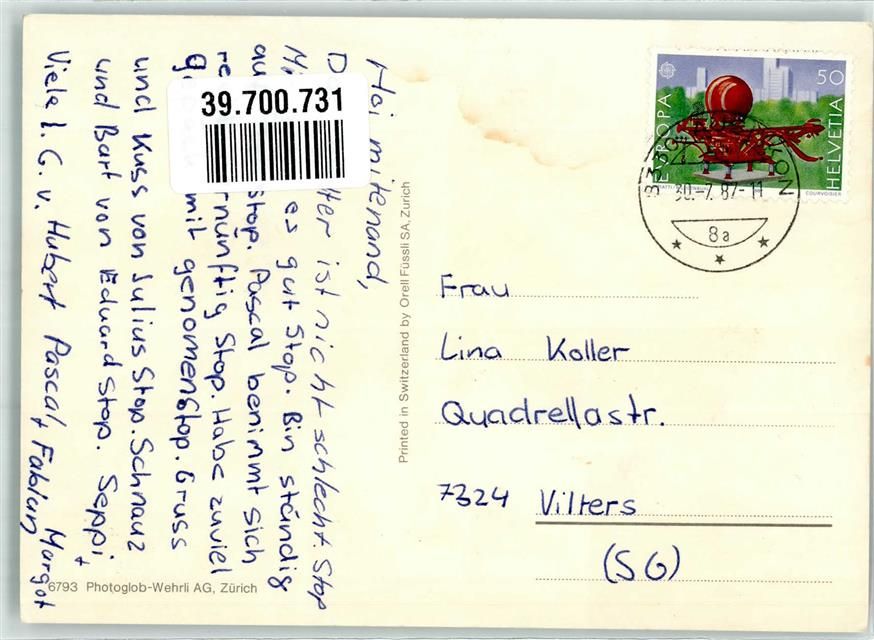 Hoi mitenand,
ist nicht schlecht. Stop
es gut Stop. Bin ständig
Stop. Pascal benimmt sich
Stop. Habe zuviel
mit genomen Stop. Gruss
und Kuss von Julius Stop. Schnauz
und Bart von Eduard Stop. Seppi
Viele l. G. v. Hubert Pascal, Fabian + Margot
39.700.731
6793 Photoglob-Wehrli AG, Zürich
Printed in Switzerland by Orell Füssli SA, Zürich
EUROPA
50
HELVETIA
COURVOISIER
30.-7.87-11
8a
Frau
Lina Koller
Quadrellastr.
7324 Vilters
(SG)